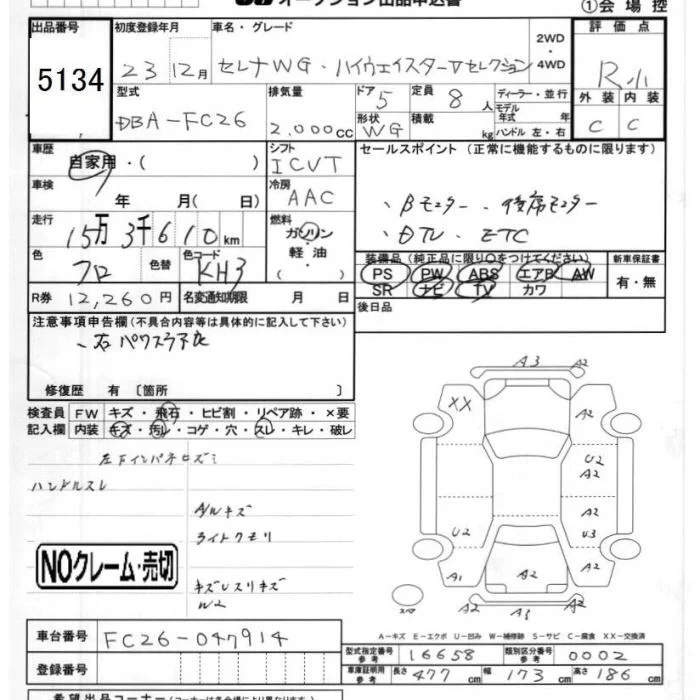 オークション出品申込書
①会場控
出品番号 初度登録年月 車名・グレード 評価点
5134 23 12月 セレナWG・ハイウェイスターVセレクション 2WD・4WD R小
型式 排気量 ドア 5 定員 8人 ディーラー・並行 外装 内装
モデル年式 年
DBA-FC26 2,000cc 形状 WG 積載 kg ハンドル 左・右 C C
車歴 シフト セールスポイント (正常に機能するものに限ります)
自家用・( ) ICVT
車検 冷房
年 月 (日) AAC ・Bモニター ・後席モニター
走行 燃料
15万3千610km ガソリン・軽油・( ) ・DTV ・ETC
色 色替 色コード 装備品 (純正品に限り○をつけてください) 新車保証書
クロ KH3 PS PW ABS エアB AW 有・無
SR ナビ TV カワ
R券 12,260円 名変通知期限 月 日 後日品
注意事項申告欄(不具合内容等は具体的に記入して下さい)
修復歴 有 〔箇所 〕
検査員 FW キズ・飛石・ヒビ割・リペア跡・×要
記入欄 内装 キズ・汚レ・コゲ・穴・スレ・キレ・破レ
ハンドルスレ
A/Wキズ
ライトクモリ
NOクレーム・売切
W2
A3
XX A2
U2
A2
A2
U2 U3
A1 A2 A2
A2
A-キズ E-エクボ U-凹み W-補修跡 S-サビ C-腐食 XX-交換済
車台番号 FC26-047914
型式指定番号 参考 16658 類別区分番号 参考 0002
登録番号 車庫証明用 参考 長さ 477cm 幅 173cm 高さ 186cm
希望出品コーナー(コーナーは各会場により異なります)